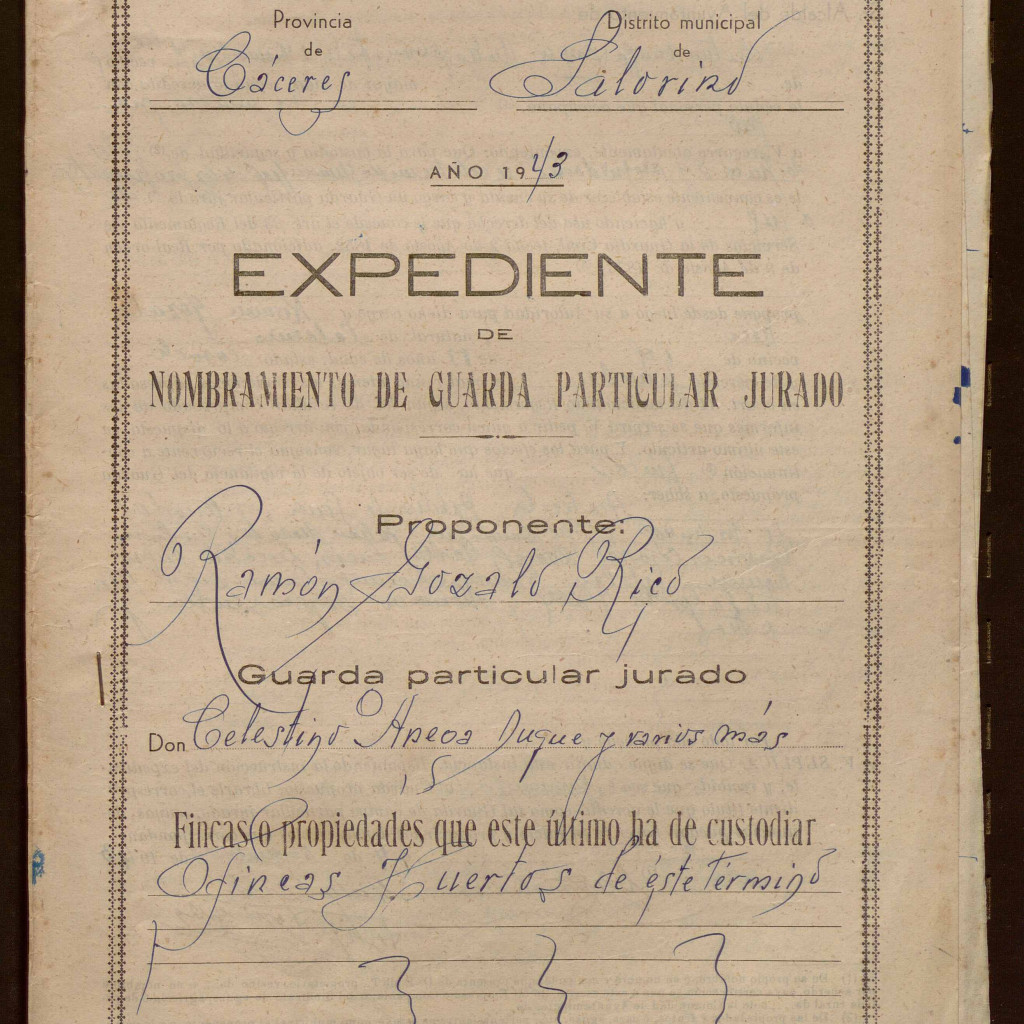 Provincia
de
Cáceres
Distrito municipal
de
Salorino
AÑO 1943
EXPEDIENTE
DE
NOMBRAMIENTO DE GUARDA PARTICULAR JURADO
Proponente:
Ramón Gozalo Rico
Guarda particular jurado
Don Celestino Duque y varios más
Fincas o propiedades que este último ha de custodiar
fincas Huertos de éste término